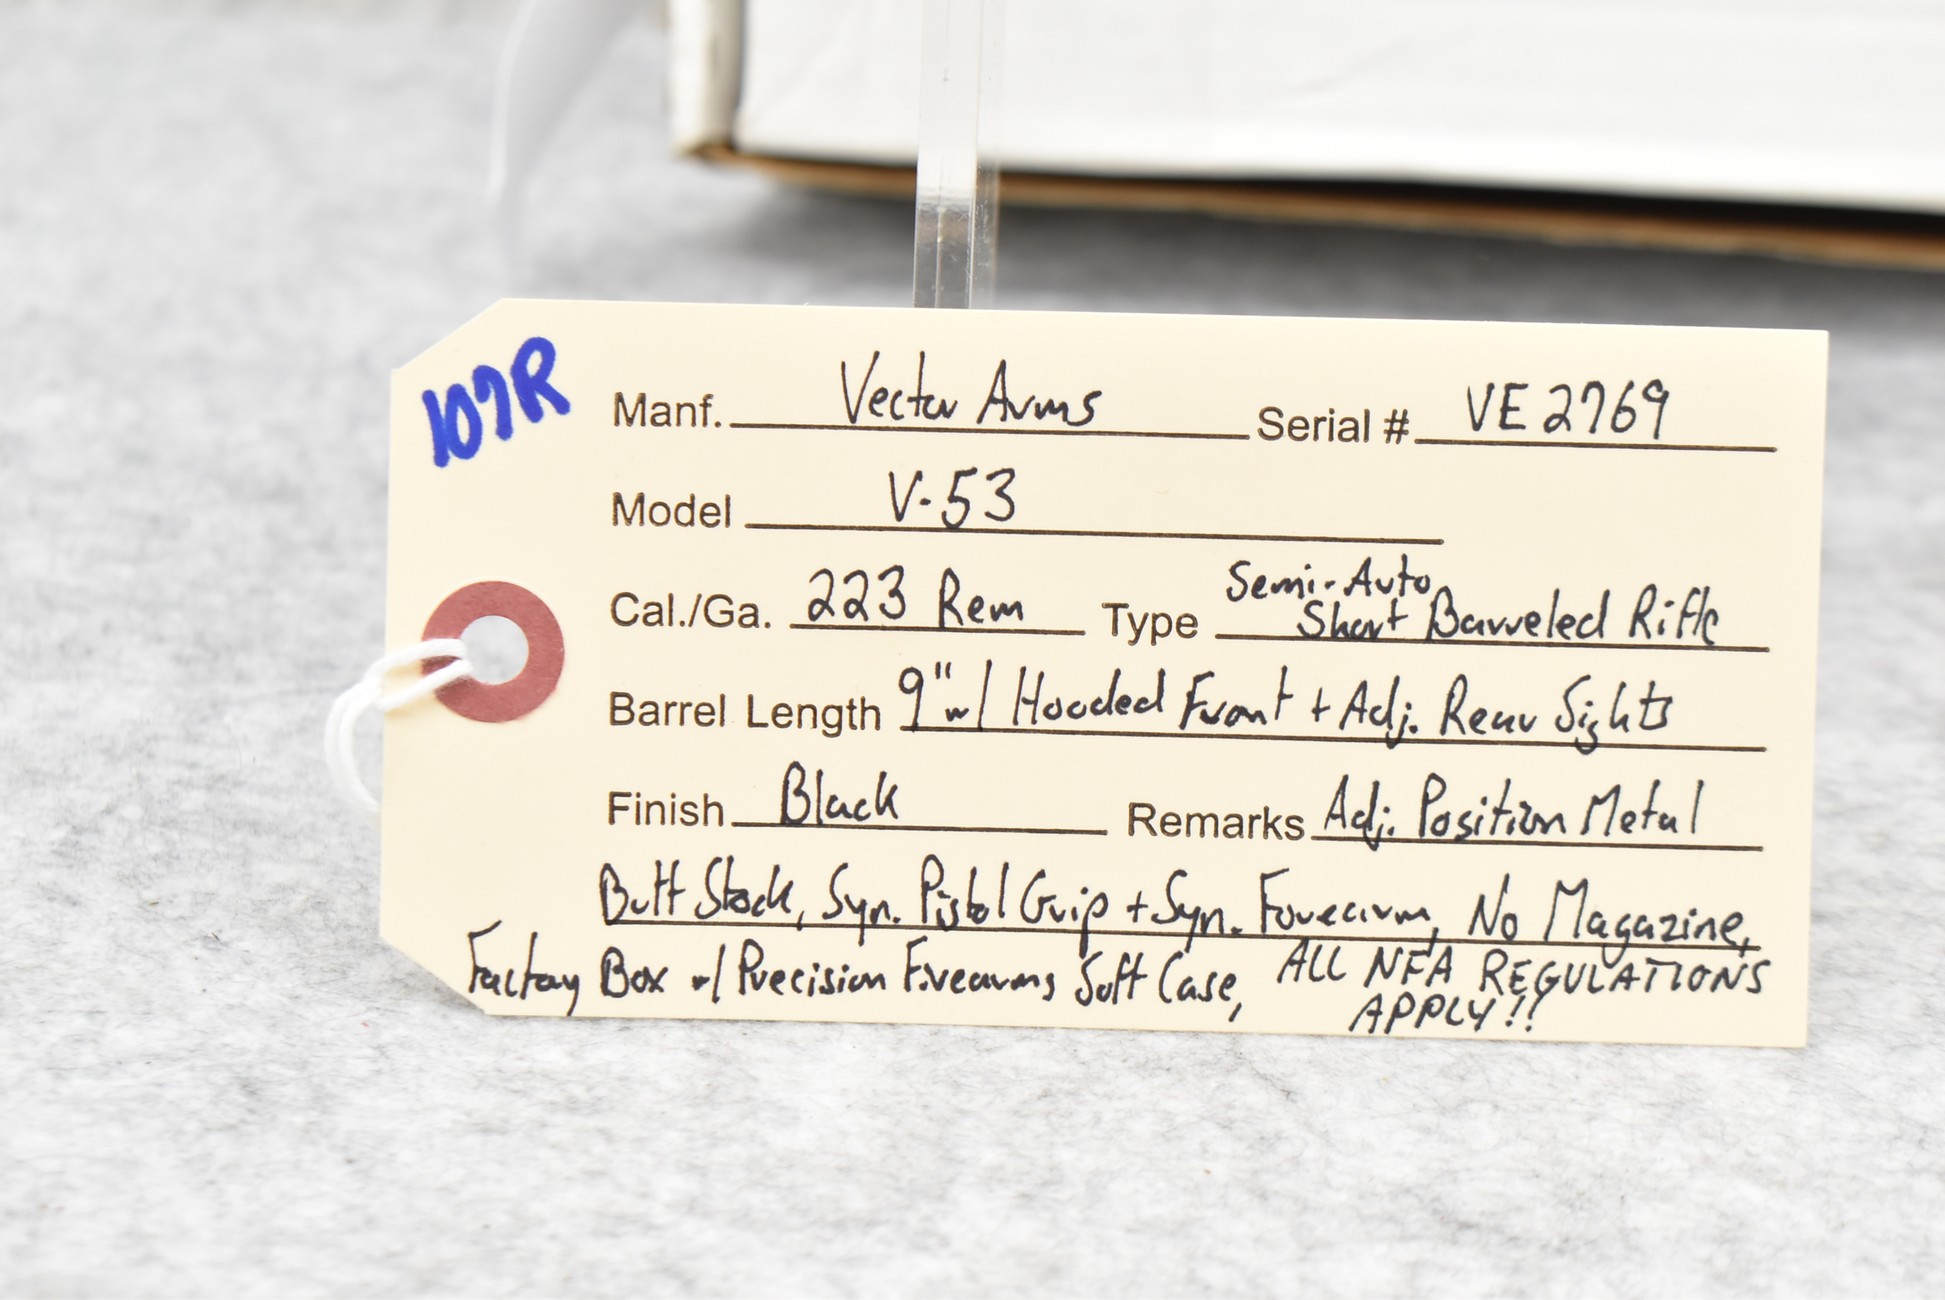 107R
Manf. Vector Arms Serial # VE2769
Model V-53
Cal./Ga. 223 Rem Type Semi-Auto Short Barreled Rifle
Barrel Length 9" w/ Hooded Front + Adj. Rear Sights
Finish Black Remarks Adj. Position Metal
Butt Stock, Syn. Pistol Grip + Syn. Forearm, No Magazine,
Factory Box w/ Precision Firearms Soft Case, ALL NFA REGULATIONS
APPLY!!